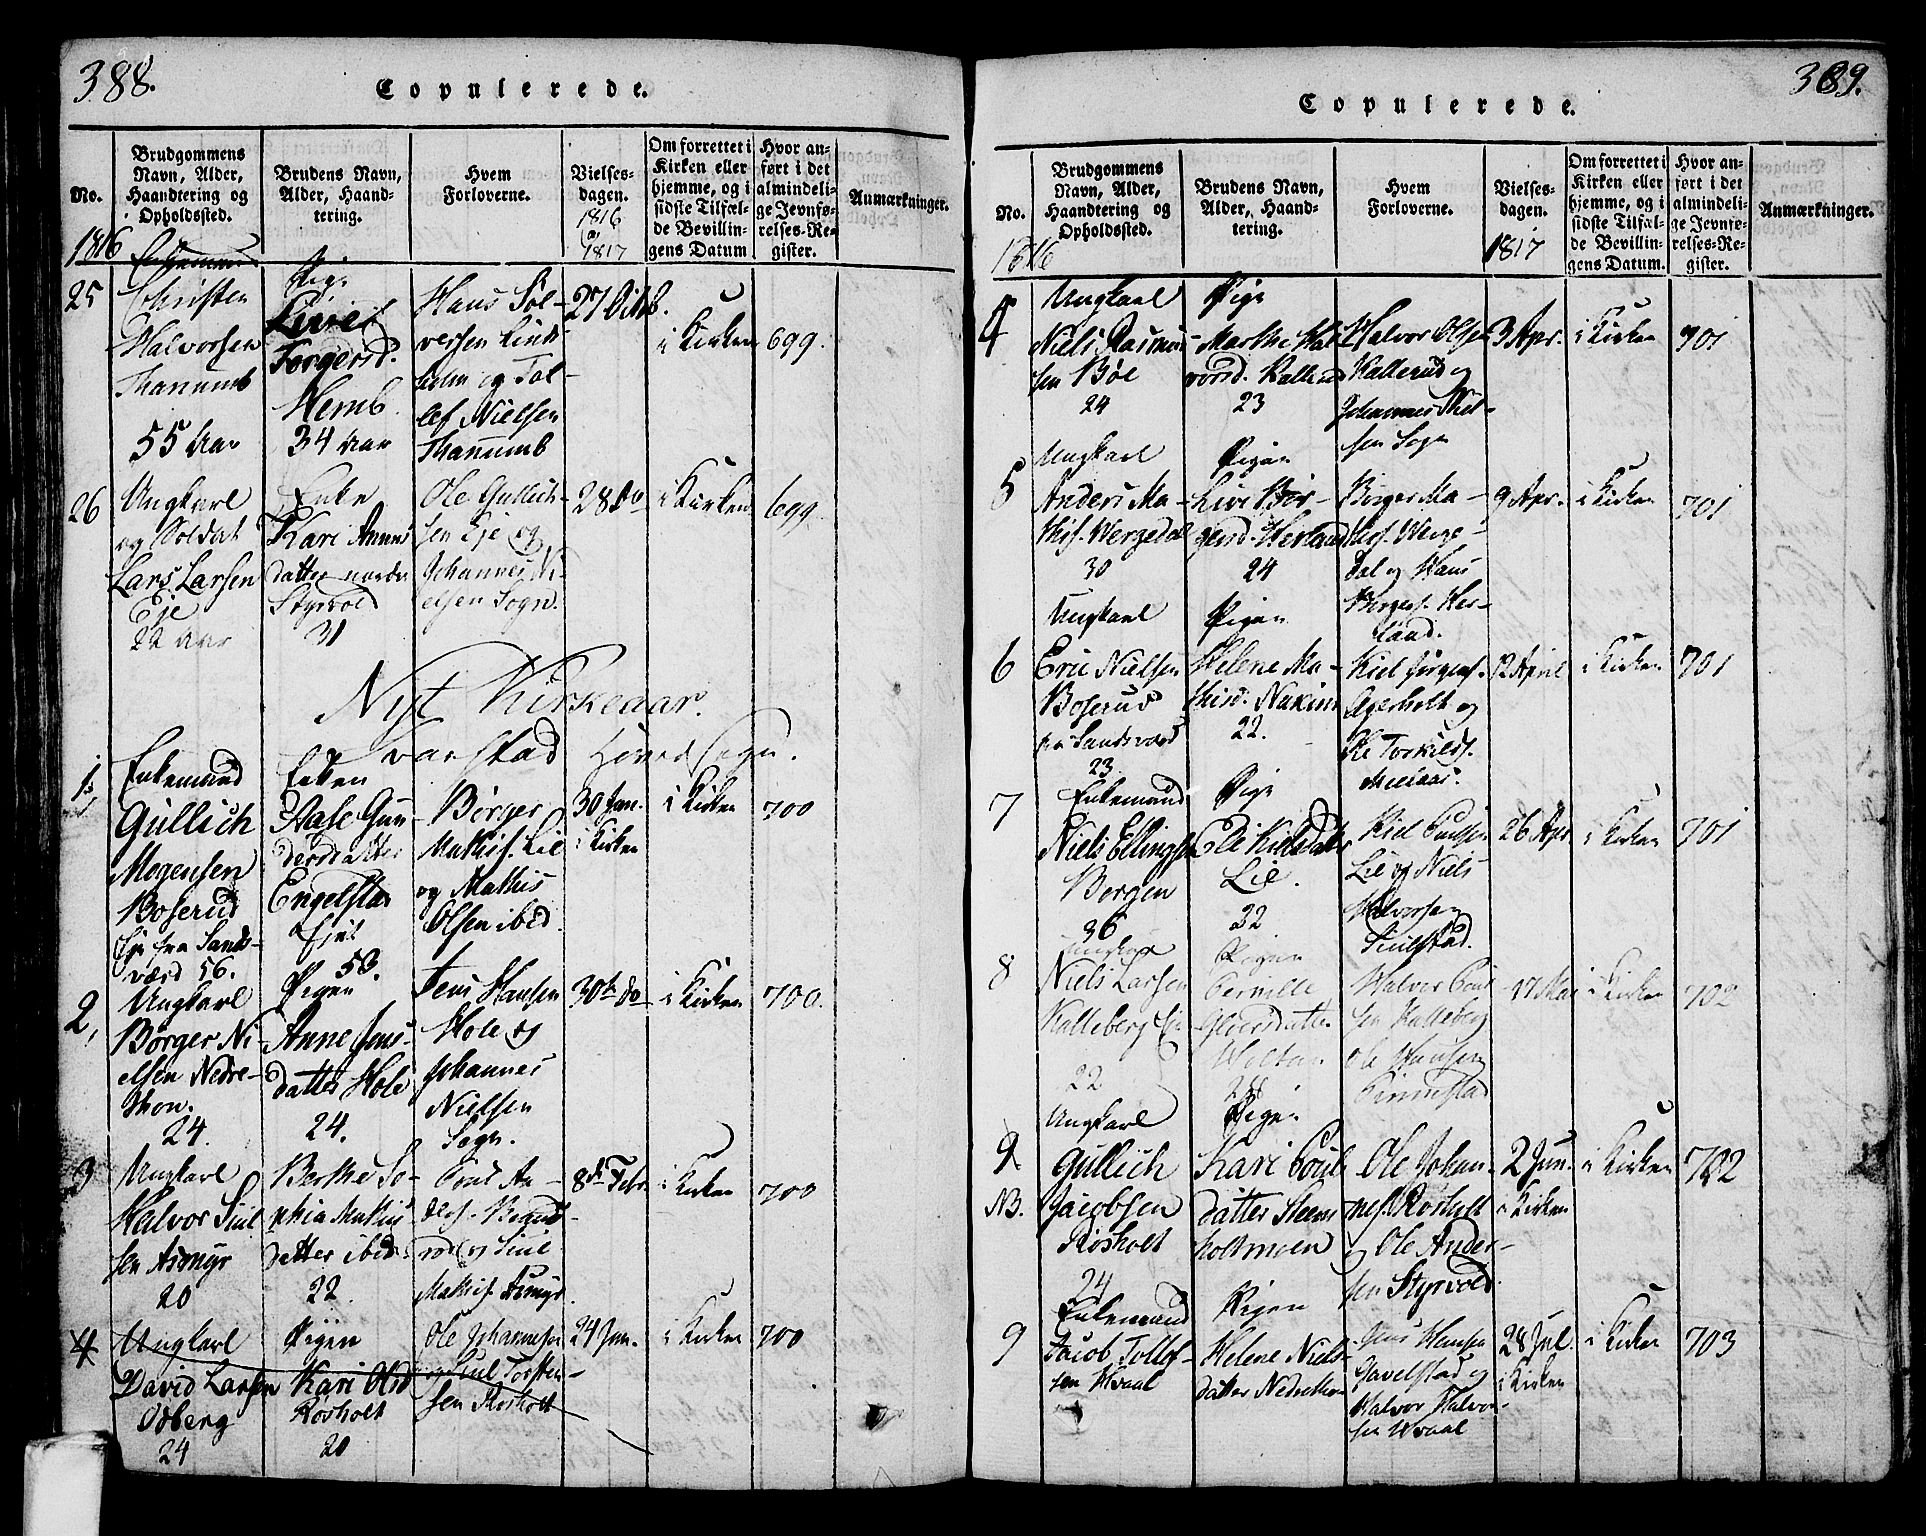 388.
Copulerede.
No.
Brudgommens
Navn, Alder,
Haandtering og
Opholdssted.
Brudens Navn,
Alder, Haand-
tering.
Hvem
Forloverne.
Vielses-
dagen.
1816
1817
Om forrettet i
Kirken eller
hjemme, og i
sidste Tilfæl-
de Bevillin-
gens Datum
Hvor an-
ført i det
almindeli-
ge Jevnfø-
relses-Re-
gister.
Anmærkninger.
1816
25
Enkemand
Christen
Halvorsen
Thanumb
55 Aar
Pige
Live
Torgersd.
Hemb.
34 Aar
Hans Sol-
versen Lind-
holm og Tol-
lef Nielsen
Thanumb
27 Octb.
i Kirken
699.
26
Ungkarl
og Soldat
Lars Larsen
Eje
22 Aar
Enke
Kari Annes
datter nordre
Styrvold
31
Ole Gullich-
sen Eje og
Johannes Ni-
elsen Sogn.
28 do
i Kirken
699.
Nyt Kirkeaar.
Hovedsogn.
1.
Enkemand
Gullich
Mogensen
Boserud
Eje fra Sands-
værd 56.
Enken
Aase Gun-
dersdatter
Engelstad
Ejet
53.
Børger
Mathis. Lie
og Mathis
Olsen ibid
30 Jan.
i Kirken
i Kirken
700
2,
Ungkarl
Børger Ni-
elsen Nedre-
thon.
24.
Pigen
Anne Jens-
datter Hole
24.
Jens Hansen
Hole og
Johannes
Nielsen
Sogn.
30te do
i Kirken
700.
3
Ungkarl
Halvor Paul
sen Asmyr
20
Berthe So-
phia Mathis
datter ibid.
22
Poul An-
ders. Brand-
rød og Paul
Mathis. Asmyr.
8de Febr.
i Kirken
700
4
Ungkarl
David Larsen
Odberg
24
Pigen
Kari Olsd
Røsholt
20
Ole Johannesen
og Poul Torsten-
sen Røsholt
24 Jun.
i Kirken
700
389.
Copulerede.
No.
Brudgommens
Navn, Alder,
Haandtering og
Opholdssted.
Brudens Navn,
Alder, Haand-
tering.
Hvem
Forloverne.
Vielses-
dagen.
1817
Om forrettet i
Kirken eller
hjemme, og i
sidste Tilfæl-
de Bevillin-
gens Datum.
Hvor an-
ført i det
almindeli-
ge Jevnfø-
relses-Re-
gister.
Anmærkninger.
1816
4
Ungkarl
Niels Rasmus-
sen Bøe
24
Pige
Marthe Hal-
vorsd. Kallerud
23
Halvor Olsen
Kallerud og
Johannes Niel-
sen Sogn
3 Apr.
i Kirken
701
5
Ungkarl
Anders Ma-
this. Wergedal
30
Pigen
Live Bør-
gersd. Herland
24
Børger Ma-
this. Werge-
dal og Hans
Børgers. Her-
land.
9 Apr.
i Kirken
701
6
Ungkarl
Eric Nielsen
Boserud
fra Sandsværd
23.
Pigen
Helene Ma-
thisd. Nakim
22.
Kiel Jørgens.
Agerholt og
Ole Torkilds.
12 April
i Kirken
701
7
Enkemand
Niels Ellingsen
Bergen
36
Pige
Eli Kielsdatter
Lie.
32
Kiel Paulsen
Lie og Niels
Halvorsen
26 Apr.
i Kirken
701
8
Ungkarl
Niels Larsen
Kalleberg Eje
22
Pigen
Pernille
28
Halvor Poul-
sen Kalleberg
Ole Hansen
17 Mai
i Kirken
702
9
NB.
Ungkarl
Gullich
Jacobsen
Røsholt
24
Pigen
Kari Pouls
datter Steens
holtmoen
Ole Johan-
nes. Røsholt
og Ole Ander-
sen Styrvold.
2 Jun.
i Kirken
i Kirken
702
9
Enkemand
Jacob Tollef-
sen Hvaal
Pigen
Helene Niels-
datter Nedrethon
Jens Hansen
Gavelstad og
Halvor Halvor-
sen Hvaal
28 Jul.
i Kirken
i Kirken
703